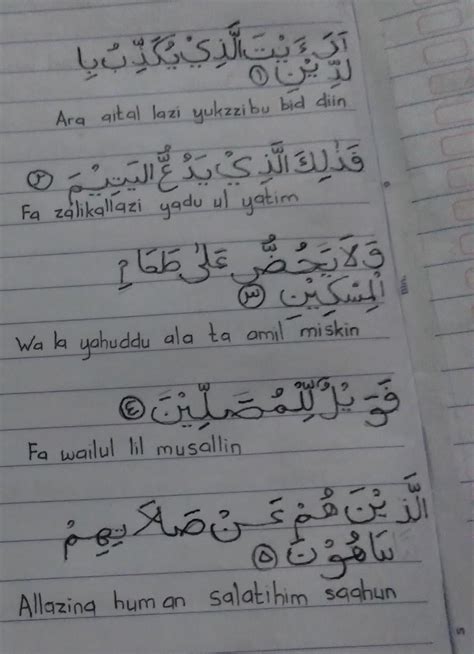 اَرَءَيْتَ الَّذِيْ يُكَذِّبُ بِا
لدِّيْنِ ١
Ara aital lazi yukzzibu bid diin
فَذٰلِكَ الَّذِيْ يَدُعُّ الْيَتِيْمَ ٢
Fa zalikallazi yadu ul yatim
وَلَا يَحُضُّ عَلٰى طَعَامِ
الْمِسْكِيْنِ ٣
Wa la yahuddu ala ta amil miskin
فَوَيْلٌ لِّلْمُصَلِّيْنَ ٤
Fa wailul lil musallin
الَّذِيْنَ هُمْ عَنْ صَلَاتِهِمْ
سَاهُوْنَ ٥
Allazina hum an salatihim saahun